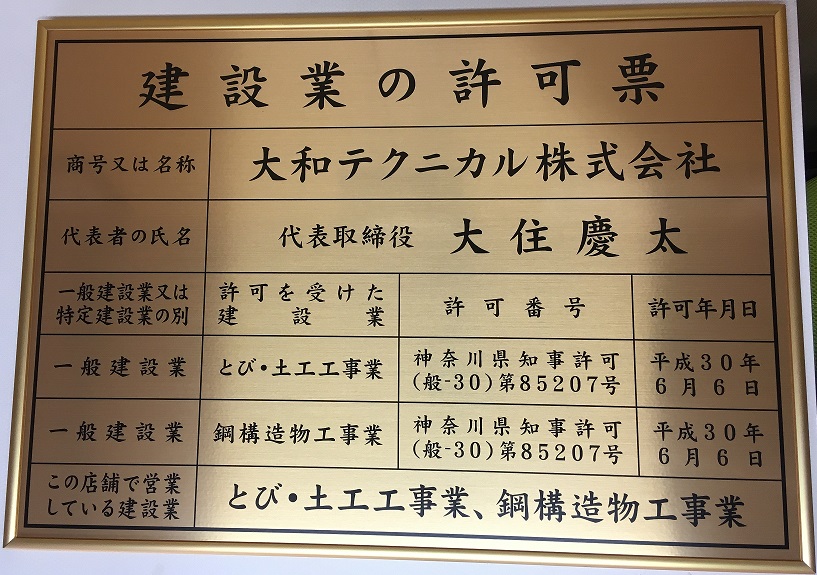 建設業の許可票
商号又は名称
大和テクニカル株式会社
代表者の氏名
代表取締役 大住慶太
一般建設業又は
特定建設業の別
許可を受けた
建設業
許可番号
許可年月日
一般建設業
とび・土工工事業
神奈川県知事許可
(般-30)第85207号
平成30年
6月6日
一般建設業
鋼構造物工事業
神奈川県知事許可
(般-30)第85207号
平成30年
6月6日
この店舗で営業
している建設業
とび・土工工事業、鋼構造物工事業